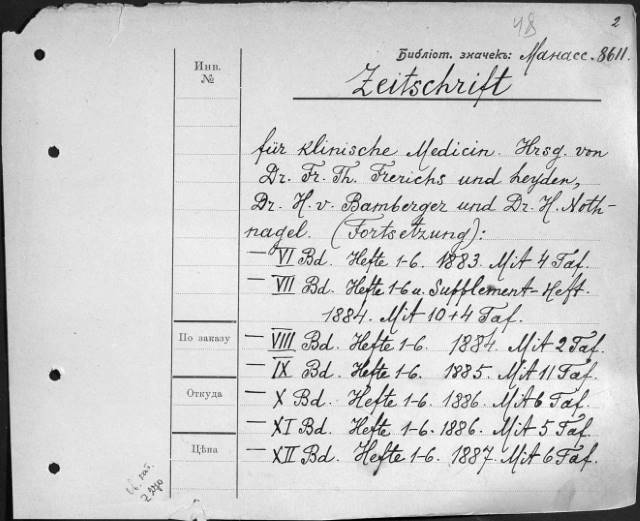 48
2
Библіот. значекъ: Манасс. 8611.
Инв.
№
Zeitschrift
für klinische Medicin. Hrsg. von
Dr. Fr. Th. Frerichs und Leyden,
Dr. H. v. Bamberger und Dr. H. Noth-
nagel. (Fortsetzung):
— VI Bd. Hefte 1-6. 1883. Mit 4 Taf.
— VII Bd. Hefte 1-6 u. Supplement-Heft.
1884. Mit 10+4 Taf.
По заказу
— VIII Bd. Hefte 1-6. 1884. Mit 2 Taf.
— IX Bd. Hefte 1-6. 1885. Mit 11 Taf.
Откуда
— X Bd. Hefte 1-6. 1886. Mit 6 Taf.
— XI Bd. Hefte 1-6. 1886. Mit 5 Taf.
Цѣна
— XII Bd. Hefte 1-6. 1887. Mit 6 Taf.